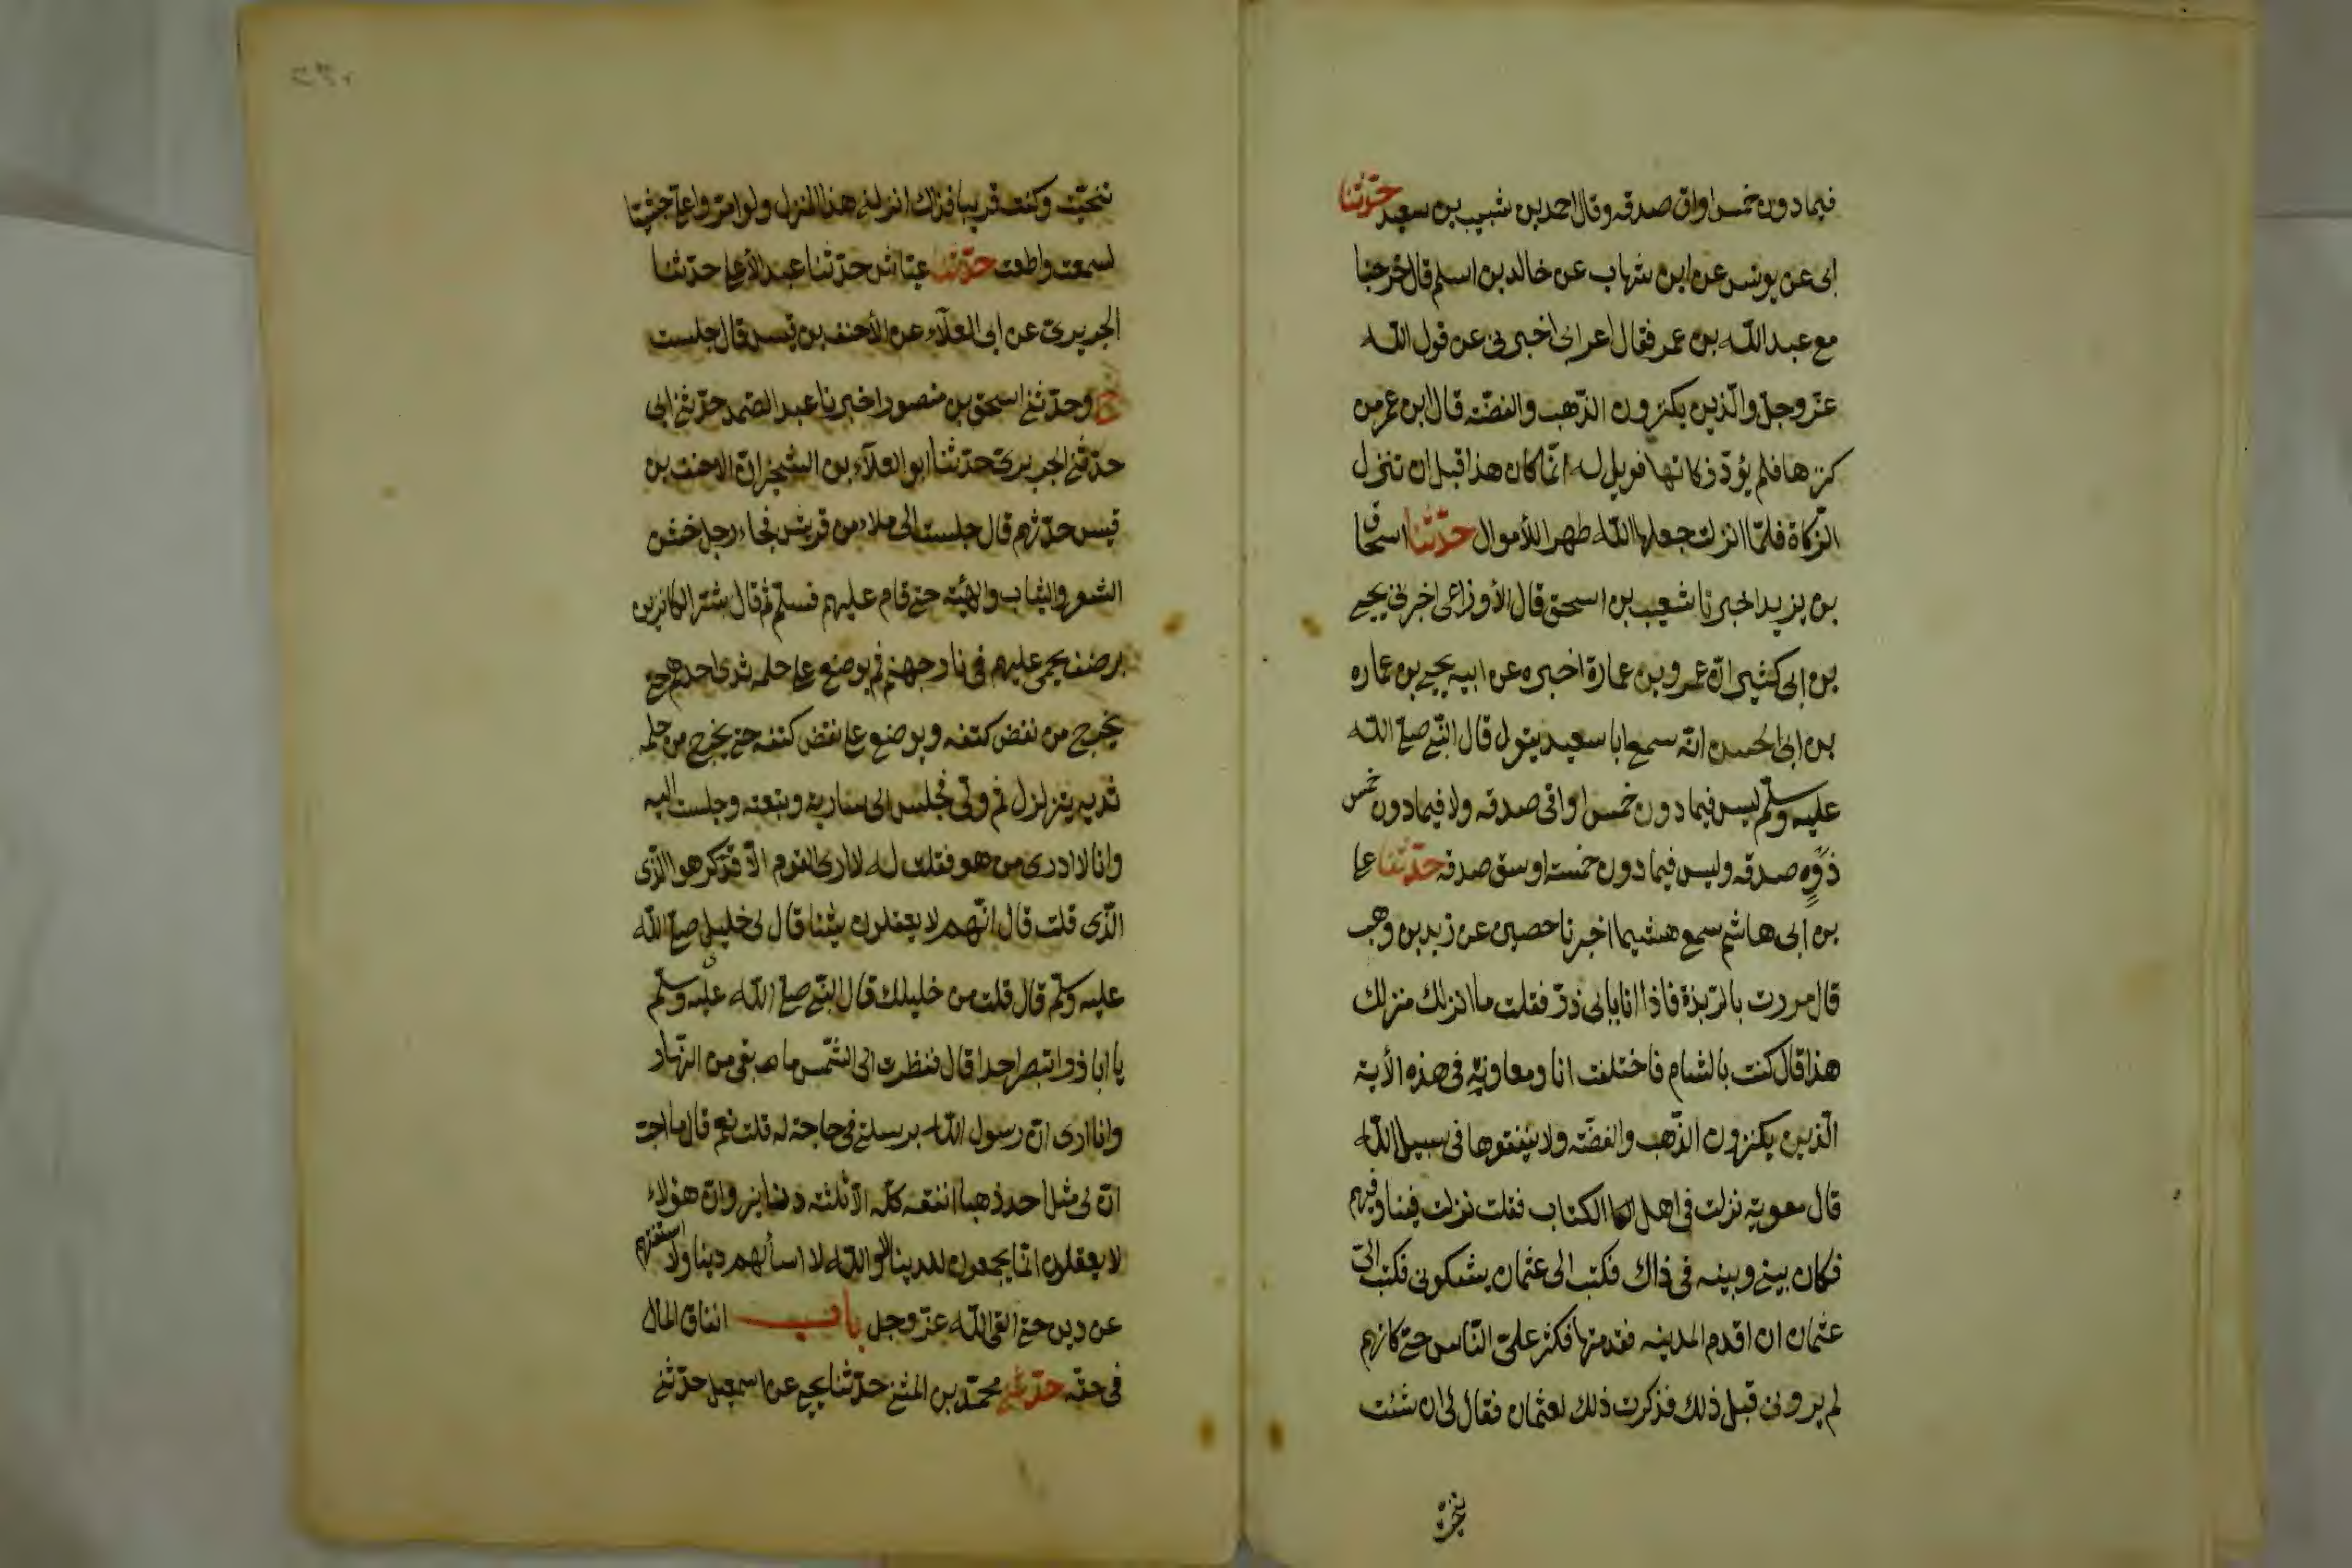 فيما دون خمس اواق صدقه وقال احمد بن شبيب بن سعيد حدّثنا
ابى عن يونس عن ابن شهاب عن خالد بن اسلم قال خرجنا
مع عبد اللّه بن عمر فقال اعرابى اخبرنى عن قول اللّه
عزّ وجلّ والّذين يكنزون الذّهب والفضّه قال ابن عمر من
كنزها فلم يؤدّ ذكاتها فويل له انّما كان هذا قبل ان تنزل
الزّكاة فلمّا انزلت جعلها اللّه طهرا للأموال حدّثنا اسحاق
بن يزيد اخبرنا شعيب بن اسحق قال الأوزاعى اخبرنى يحيى
بن ابى كثير انّ عمرو بن عمارة اخبره عن ابيه يحيى بن عماره
بن ابى الحسن انّه سمع ابا سعيد يقول قال النّبى صلّى اللّه
عليه وسلّم ليس فيما دون خمس اواقى صدقه ولا فيما دون خمس
ذود صدقه وليس فيما دون خمسة اوسق صدقه حدّثنا على
بن ابى هاشم سمع هشيما اخبرنا حصين عن زيد بن وهب
قال مررت بالرّبذة فاذا انا بابى ذرّ فقلت ما انزلك منزلك
هذا قال كنت بالشام فاختلفت انا ومعاوية فى هذه الأية
الّذين يكنزون الذّهب والفضّه ولا ينفقوها فى سبيل اللّه
قال معوية نزلت فى اهل الكتاب فقلت نزلت فينا وفيهم
فكان بينى وبينه فى ذاك فكتب الى عثمان يشكونى فكتب الىّ
عثمان ان اقدم المدينه فقدمتها فكثر علىّ النّاس حتى كانهم
لم يرونى قبل ذلك فذكرت ذلك لعثمان فقال لى ان شئت
تنحيت
تنحيت وكنت قريبا فذاك انزلنى هذا المنزل ولو امّروا علىّ حبشيّا
لسمعت واطعت حدّثنا عيّاش حدّثنا عبد الأعلى حدّثنا
الجريرىّ عن ابى العلآء عن الأحنف بن قيس قال جلست
ح وحدّثنى اسحق بن منصور اخبرنا عبد الصّمد حدّثنى ابى
حدّثنى الجريرىّ حدّثنا ابو العلآء بن الشخيران الاحنف بن
قيس حدّثهم قال جلست الى ملاء من قريش فجاء رجل خشن
الشعر والثياب والهيئه حتى قام عليهم فسلّم ثم قال بشّر الكانزين
برضف يحمى عليهم فى نار جهنم ثم يوضع على حلمه ثدى احدهم حتى
يخرج من نغض كتفه ويوضع على نغض كتفه حتى يخرج من حلمه
ثديه يتزلزل ثم ولّى فجلس الى سارية وتبعته وجلست اليه
وانا لا ادرى من هو فقلت له لا ارى القوم الّا قد كرهوا الّذى
الّذى قلت قال انّهم لا يعقلون شيئا قال لى خليلى صلّى اللّه
عليه وسلّم قال قلت من خليلك قال النّبى صلّى اللّه عليه وسلّم
يا ابا ذر اتبصر احدا قال فنظرت الى الشّمس ما بقى من النّهار
وانا ارى انّ رسول اللّه يرسلنى فى حاجة له قلت نعم قال ما احبّ
انّ لى مثل احد ذهبا انفقه كلّه الّا ثلثة دنانير وانّ هؤلاء
لا يعقلون انّما يجمعون للدينا لا واللّه لا اسألهم دينا ولا استفتيهم
عن دين حتى القى اللّه عزّ وجل باب انفاق المال
فى حقه حدّثنى محمّد بن المثنى حدّثنا يحيى عن اسمعيل حدّثنى